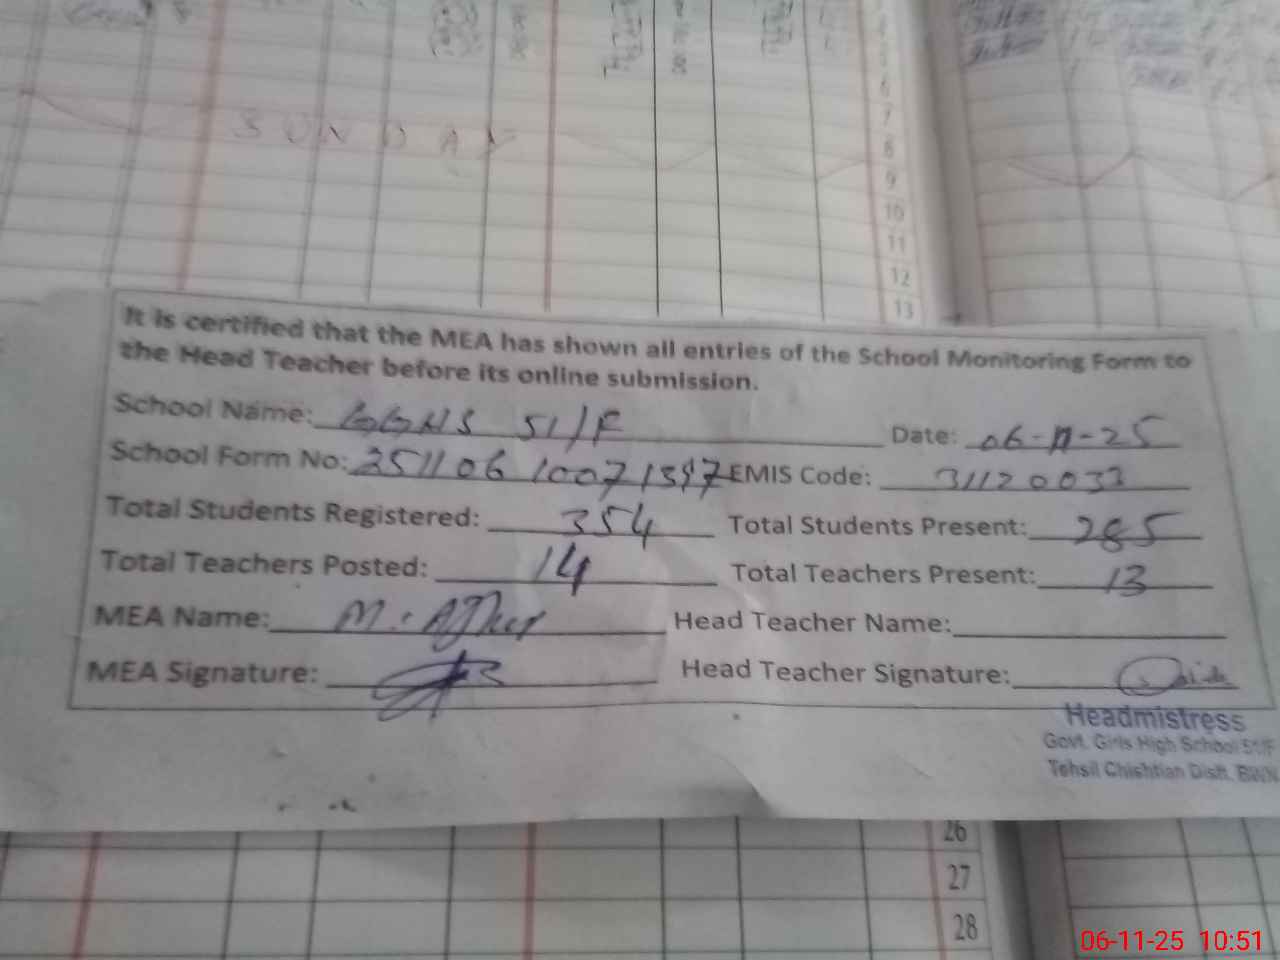 SUNDAY
6
7
8
9
10
11
12
13
It is certified that the MEA has shown all entries of the School Monitoring Form to
the Head Teacher before its online submission.
School Name: GGHS 51/F Date: 06-11-25
School Form No: EMIS Code: 31120033
Total Students Registered: 354 Total Students Present: 285
Total Teachers Posted: 14 Total Teachers Present: 13
MEA Name: Head Teacher Name:
MEA Signature: Head Teacher Signature:
Headmistress
Govt. Girls High School 51/F
Tehsil Chishtian Distt. BWN
26
27
28
06-11-25 10:51